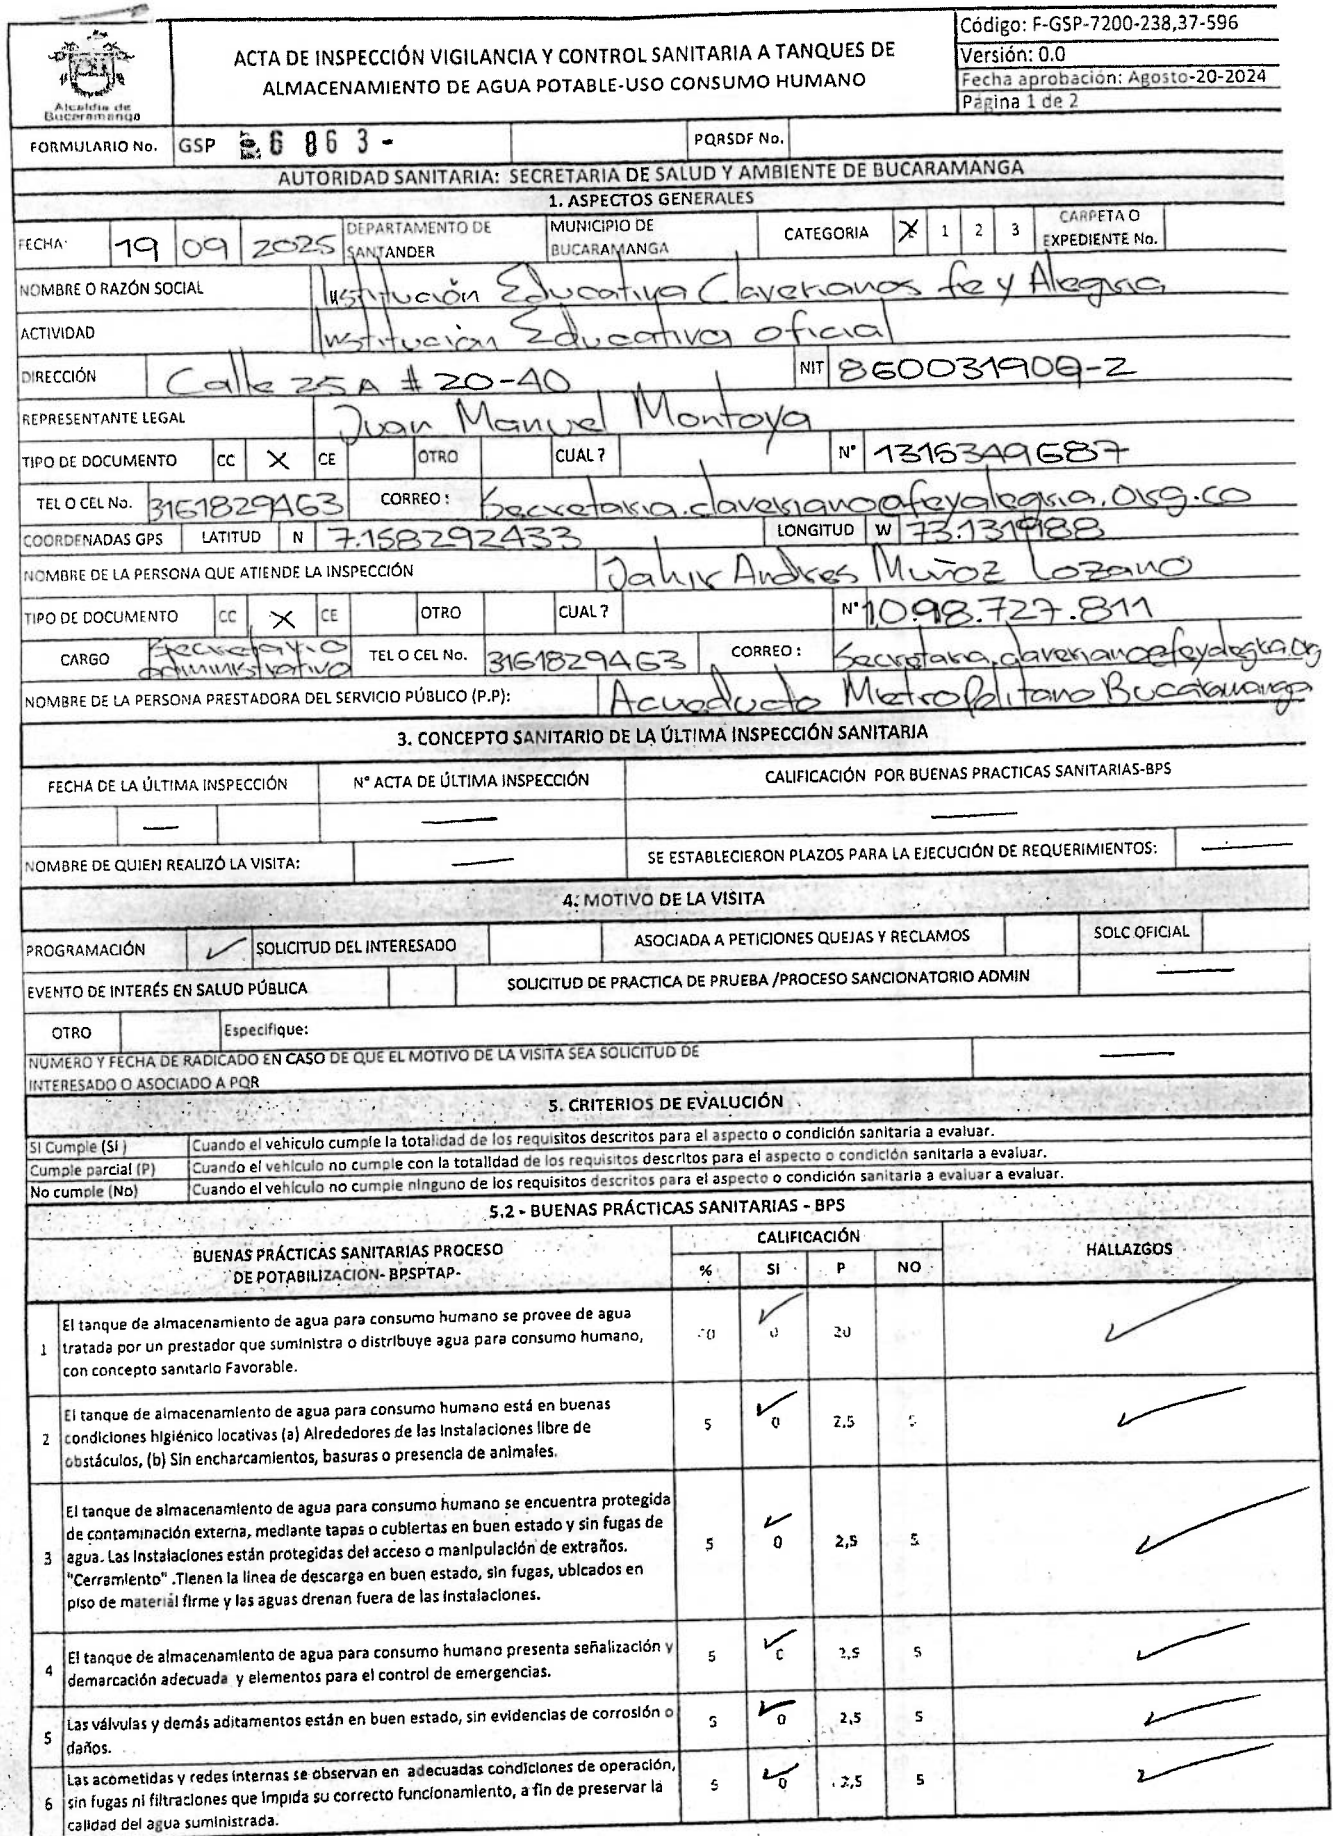 Alcaldía de
Bucaramanga
ACTA DE INSPECCIÓN VIGILANCIA Y CONTROL SANITARIA A TANQUES DE
ALMACENAMIENTO DE AGUA POTABLE-USO CONSUMO HUMANO
Código: F-GSP-7200-238,37-596
Versión: 0.0
Fecha aprobación: Agosto-20-2024
Página 1 de 2
FORMULARIO No. GSP 6 8 6 3 - PQRSDF No.
AUTORIDAD SANITARIA: SECRETARIA DE SALUD Y AMBIENTE DE BUCARAMANGA
1. ASPECTOS GENERALES
FECHA: 19 09 2025 DEPARTAMENTO DE SANTANDER MUNICIPIO DE BUCARAMANGA CATEGORIA X 1 2 3 CARPETA O EXPEDIENTE No.
NOMBRE O RAZÓN SOCIAL Institución Educativa Claverianos fe y Alegria
ACTIVIDAD Institución Educativa oficial
DIRECCIÓN Calle 25A # 20-40 NIT 860031909-2
REPRESENTANTE LEGAL Juan Manuel Montoya
TIPO DE DOCUMENTO CC X CE OTRO CUAL ? N° 1315349687
TEL O CEL No. 3161829463 CORREO : Secretaria.claveriano@feyalegria.org.co
COORDENADAS GPS LATITUD N 7.158292433 LONGITUD W 73.131988
NOMBRE DE LA PERSONA QUE ATIENDE LA INSPECCIÓN Jahir Andres Muñoz Lozano
TIPO DE DOCUMENTO CC X CE OTRO CUAL ? N° 1.098.727.811
CARGO Secretario administrativo TEL O CEL No. 3161829463 CORREO : Secretaria.claveriano@feyalegria.org
NOMBRE DE LA PERSONA PRESTADORA DEL SERVICIO PÚBLICO (P.P): Acueducto Metropolitano Bucaramanga
3. CONCEPTO SANITARIO DE LA ÚLTIMA INSPECCIÓN SANITARIA
FECHA DE LA ÚLTIMA INSPECCIÓN N° ACTA DE ÚLTIMA INSPECCIÓN CALIFICACIÓN POR BUENAS PRACTICAS SANITARIAS-BPS
— — —
NOMBRE DE QUIEN REALIZÓ LA VISITA: — SE ESTABLECIERON PLAZOS PARA LA EJECUCIÓN DE REQUERIMIENTOS: —
4. MOTIVO DE LA VISITA
PROGRAMACIÓN ✓ SOLICITUD DEL INTERESADO ASOCIADA A PETICIONES QUEJAS Y RECLAMOS SOLC OFICIAL
EVENTO DE INTERÉS EN SALUD PÚBLICA SOLICITUD DE PRACTICA DE PRUEBA /PROCESO SANCIONATORIO ADMIN —
OTRO Especifique:
NÚMERO Y FECHA DE RADICADO EN CASO DE QUE EL MOTIVO DE LA VISITA SEA SOLICITUD DE
INTERESADO O ASOCIADO A PQR —
5. CRITERIOS DE EVALUCIÓN
Si Cumple (SI ) Cuando el vehículo cumple la totalidad de los requisitos descritos para el aspecto o condición sanitaria a evaluar.
Cumple parcial (P) Cuando el vehículo no cumple con la totalidad de los requisitos descritos para el aspecto o condición sanitaria a evaluar.
No cumple (No) Cuando el vehículo no cumple ninguno de los requisitos descritos para el aspecto o condición sanitaria a evaluar a evaluar.
5.2 - BUENAS PRÁCTICAS SANITARIAS - BPS
BUENAS PRÁCTICAS SANITARIAS PROCESO
DE POTABILIZACION- BPSPTAP-
CALIFICACIÓN
% SI P NO
HALLAZGOS
1 El tanque de almacenamiento de agua para consumo humano se provee de agua
tratada por un prestador que suministra o distribuye agua para consumo humano,
con concepto sanitario Favorable.
✓ 0 20 ✓
2 El tanque de almacenamiento de agua para consumo humano está en buenas
condiciones higiénico locativas (a) Alrededores de las instalaciones libre de
obstáculos, (b) Sin encharcamientos, basuras o presencia de animales.
5 ✓ 0 2,5 5 ✓
3 El tanque de almacenamiento de agua para consumo humano se encuentra protegida
de contaminación externa, mediante tapas o cubiertas en buen estado y sin fugas de
agua. Las instalaciones están protegidas del acceso o manipulación de extraños.
"Cerramiento" .Tienen la linea de descarga en buen estado, sin fugas, ubicados en
piso de material firme y las aguas drenan fuera de las instalaciones.
5 ✓ 0 2,5 5 ✓
4 El tanque de almacenamiento de agua para consumo humano presenta señalización y
demarcación adecuada y elementos para el control de emergencias.
5 ✓ 0 2,5 5 ✓
5 Las válvulas y demás aditamentos están en buen estado, sin evidencias de corrosión o
daños.
5 ✓ 0 2,5 5 ✓
6 Las acometidas y redes internas se observan en adecuadas condiciones de operación,
sin fugas ni filtraciones que impida su correcto funcionamiento, a fin de preservar la
calidad del agua suministrada.
5 ✓ 0 2,5 5 ✓